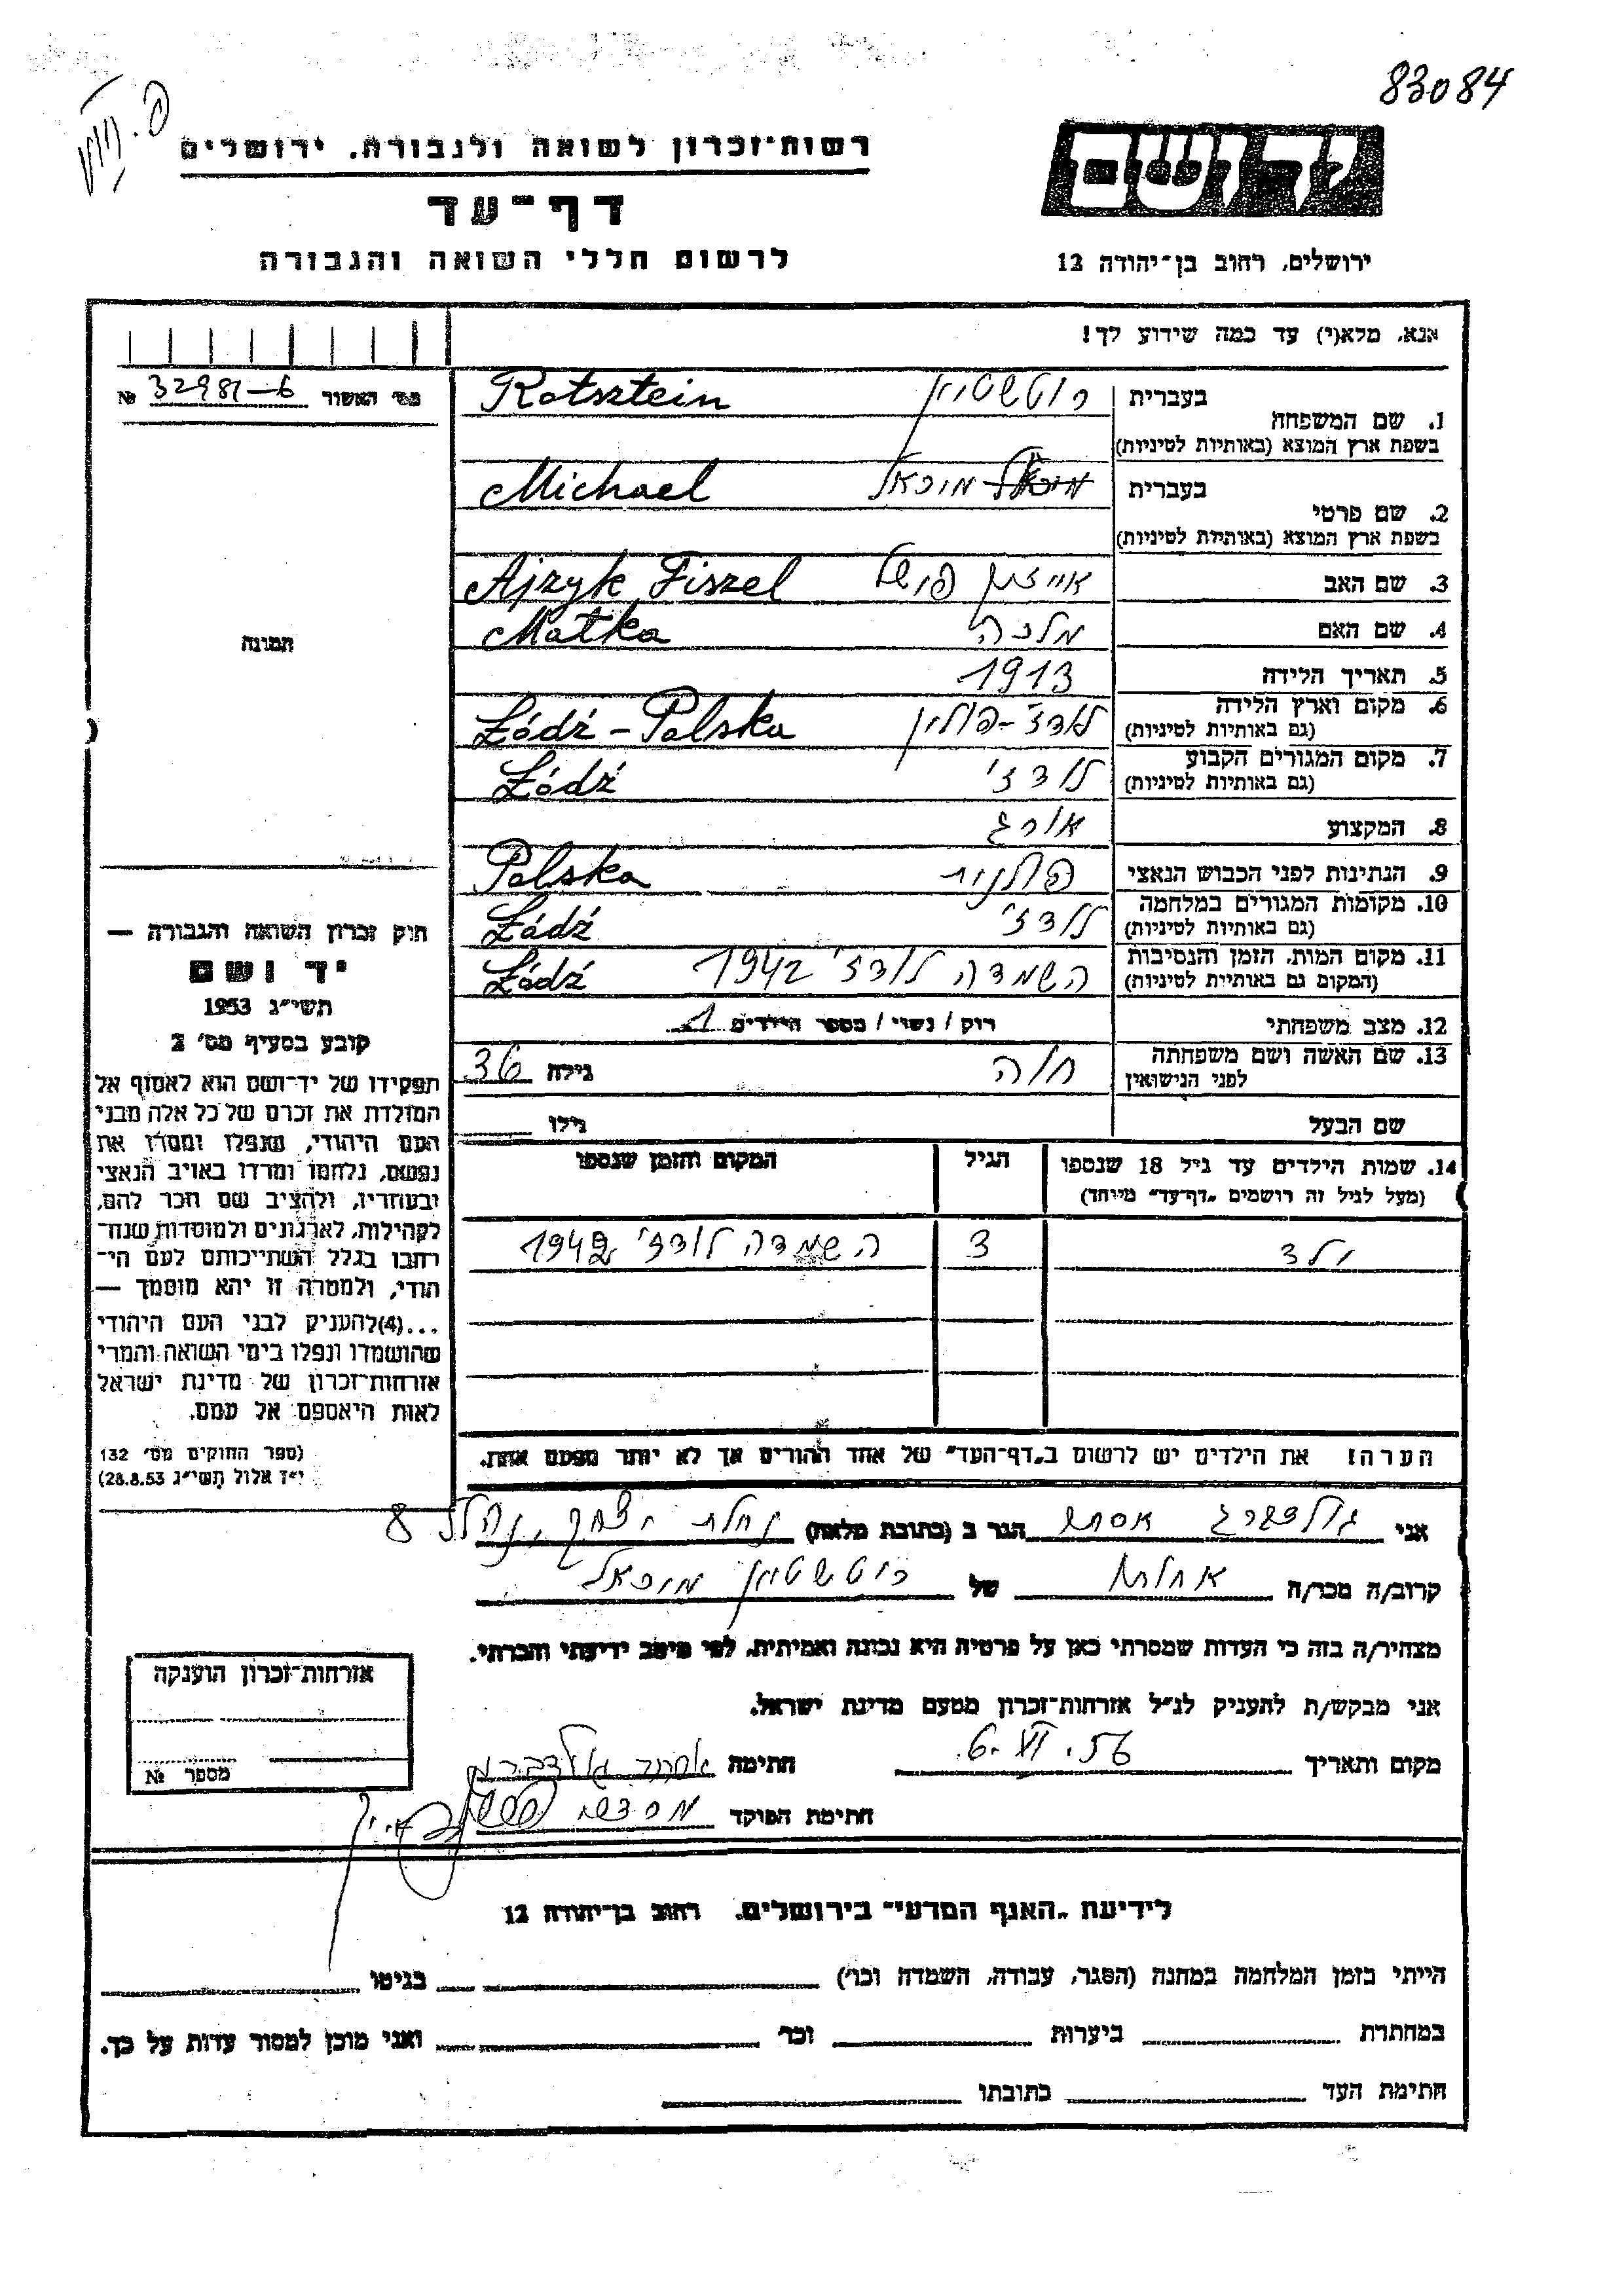 83084
רשות־זכרון לשואה ולגבורה. ירושלים
יד ושם
דף־עד
לרשום חללי השואה והגבורה
ירושלים, רחוב בן־יהודה 12
אנא, מלא(י) עד כמה שידוע לך!
מס׳ האשור 32981-6 №
בעברית רוטשטיין Rotsztein
1. שם המשפחה
בשפת ארץ המוצא (באותיות לטיניות)
בעברית מיכאל Michael
2. שם פרטי
בשפת ארץ המוצא (באותיות לטיניות)
3. שם האב אייזיק פישל Ajzyk Fiszel
4. שם האם מלכה Małka
5. תאריך הלידה 1913
6. מקום וארץ הלידה לודז׳ - פולין Łódź - Polska
(גם באותיות לטיניות)
7. מקום המגורים הקבוע לודז׳ Łódź
(גם באותיות לטיניות)
8. המקצוע אורג
9. הנתינות לפני הכבוש הנאצי פולנית Polska
10. מקומות המגורים במלחמה לודז׳ Łódź
(גם באותיות לטיניות)
11. מקום המות, הזמן והנסיבות השמדה לודז׳ 1942 Łódź
(המקום גם באותיות לטיניות)
12. מצב משפחתי רווק / נשוי / מספר הילדים 1
13. שם האשה ושם משפחתה לפני הנישואין חוה גילה 36
שם הבעל גילו
14. שמות הילדים עד גיל 18 שנספו הגיל המקום והזמן שנספו
(מעל לגיל זה רושמים „דף־עד״ מיוחד)
ילד 3 השמדה לודז׳ 1942
הערה! את הילדים יש לרשום ב„דף־העד״ של אחד ההורים אך לא יותר מפעם אחת.
התמונה
חוק זכרון השואה והגבורה —
יד ושם
תשי״ג 1953
קובע בסעיף מס׳ 2
תפקידו של יד־ושם הוא לאסוף אל
המולדת את זכרם של כל אלה מבני
העם היהודי, שנפלו ומסרו את
נפשם, נלחמו ומרדו באויב הנאצי
ובעוזריו, ולהציב שם וזכר להם,
לקהילות, לארגונים ולמוסדות שנח־
רבו בגלל השתייכותם לעם הי־
הודי, ולמטרה זו יהא מוסמך —
...(4) להעניק לבני העם היהודי
שהושמדו ונפלו בימי השואה והמרי
אזרחות־זכרון של מדינת ישראל
לאות היאספם אל עמם.
(ספר החוקים מס׳ 132
י״ז אלול תשי״ג 28.8.53)
אני גולדברג אסתר הגר ב (כתובת מלאה) נחלת יצחק, נהלל 8
קרוב/ה מכר/ה אחות של רוטשטיין מיכאל
מצהיר/ה בזה כי העדות שמסרתי כאן על פרטיה היא נכונה ואמיתית, לפי מיטב ידיעתי והכרתי.
אני מבקש/ת להעניק לנ״ל אזרחות־זכרון מטעם מדינת ישראל.
מקום ותאריך 6.VI.56 חתימה אסתר גולדברג
חתימת הפוקד
אזרחות־זכרון הוענקה
מספר №
לידיעת „האגף המדעי״ בירושלים. רחוב בן־יהודה 12
הייתי בזמן המלחמה במחנה (הסגר, עבודה, השמדה וכו׳) בגיטו
במחתרת ביערות וכו׳ ואני מוכן למסור עדות על כך.
חתימת העד כתובתו